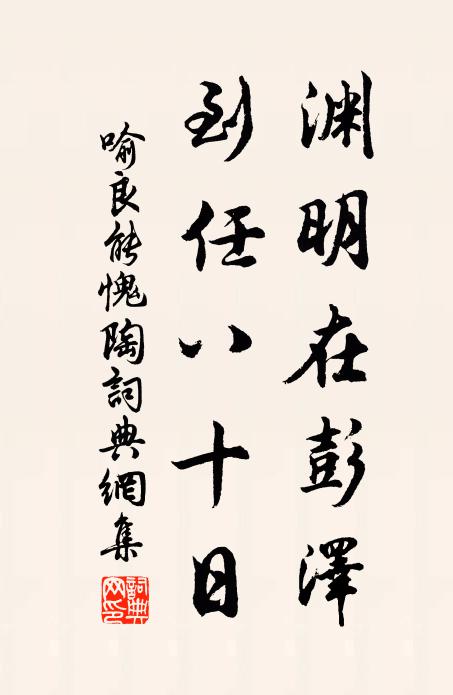 渊明在彭澤
到任八十日
喻良能愧陶詞典網集
詞典网印